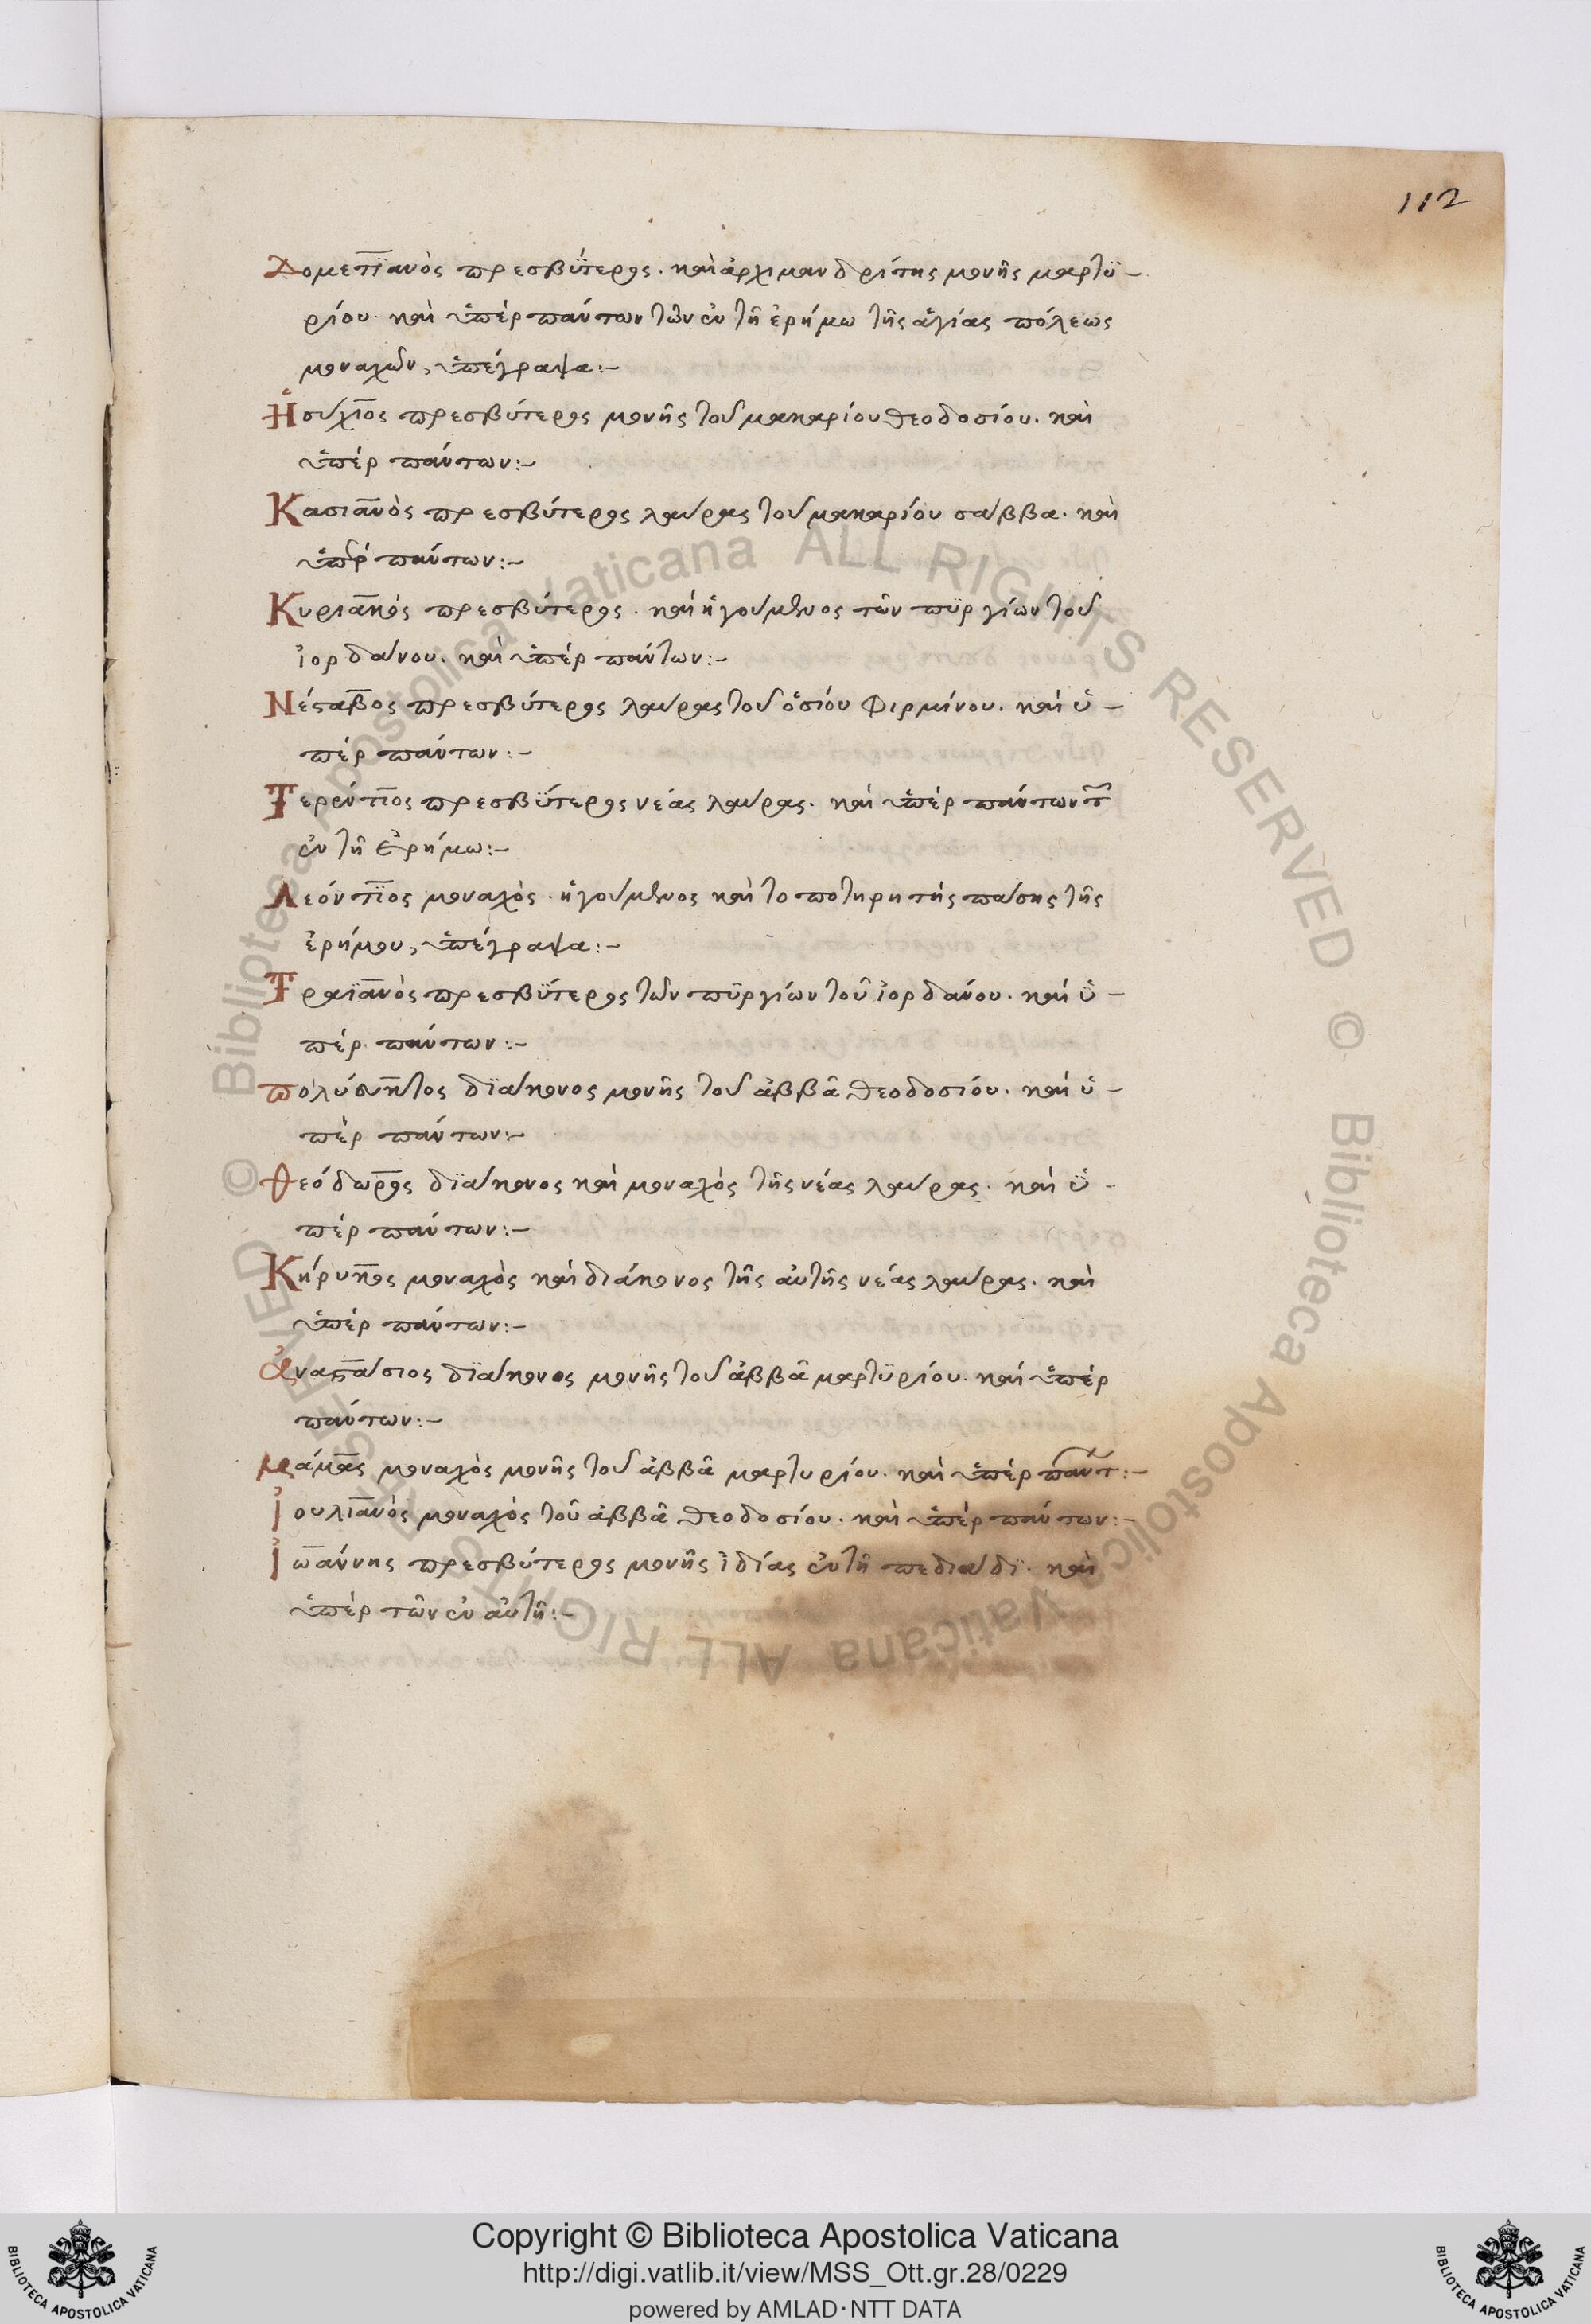 112
Δομετϊανὸς πρεσβΰτερος. καὶ ἀρχιμανδρίτης μονῆς μαρτϋ-
ρίου. καὶ ὑπὲρ πάντων τῶν ἐν τῆ ἐρήμω τῆς ἁγίας πόλεως
μοναχῶν, ὑπέγραψα:-
Ἡσύχιος πρεσβύτερος μονῆς τοῦ μακαρίου θεοδοσίου. καὶ
ὑπὲρ πάντων:-
Κασιανὸς πρεσβύτερος λαύρας τοῦ μακαρίου σάββα. καὶ
ὑπὲρ πάντων:-
Κυριακός πρεσβύτερος. καὶ ἡγούμενος τῶν πϋργίων τοῦ
ἰορδάνου. καὶ ὑπὲρ πάντων:-
Νέσταβος πρεσβύτερος λαύρας τοῦ ὁσίου Φιρμίνου. καὶ ὑ-
πὲρ πάντων:-
Τερέντιος πρεσβΰτερος νέας λαύρας. καὶ ὑπὲρ πάντων τ
ἐν τῆ ἐρήμω:-
Λεόντϊος μοναχὸς. ἡγούμενος καὶ τοποτηρητής πάσης τῆς
ἐρήμου, ὑπέγραψα:-
Τραϊανὸς πρεσβΰτερος τῶν πϋργίων τοῦ ἰορδάνου. καὶ ὑ-
πὲρ πάντων:-
Πολύευκτος δϊάκονος μονῆς τοῦ ἀββᾶ θεοδοσίου. καὶ ὑ-
πὲρ πάντων:-
Θεόδωρος δϊάκονος καὶ μοναχὸς τῆς νέας λαύρας. καὶ ὑ-
πὲρ πάντων:-
Κήρυκος μοναχὸς καὶ διάκονος τῆς αὐτῆς νέας λαύρας. καὶ
ὑπὲρ πάντων:-
Ἀναστάσιος δϊάκονος μονῆς τοῦ ἀββᾶ μαρτϋρίου. καὶ ὑπὲρ
πάντων:-
Μάμας μοναχὸς μονῆς τοῦ ἀββᾶ μαρτυρίου. καὶ ὑπὲρ πάντ:-
Ἰουλιανὸς μοναχὸς τοῦ ἀββᾶ θεοδοσίου. καὶ ὑπὲρ πάντων:-
Ἰωάννης πρεσβύτερος μονῆς ἰδίας ἐν τῆ πεδιάδϊ. καὶ
ὑπὲρ τῶν ἐν αὐτῆ:-
© Biblioteca Apostolica Vaticana ALL RIGHTS RESERVED © Biblioteca Apostolica Vaticana ALL RIGHTS RESERVED
Copyright © Biblioteca Apostolica Vaticana
http://digi.vatlib.it/view/MSS_Ott.gr.28/0229
powered by AMLAD·NTT DATA
BIBLIOTECA APOSTOLICA VATICANA
BIBLIOTECA APOSTOLICA VATICANA